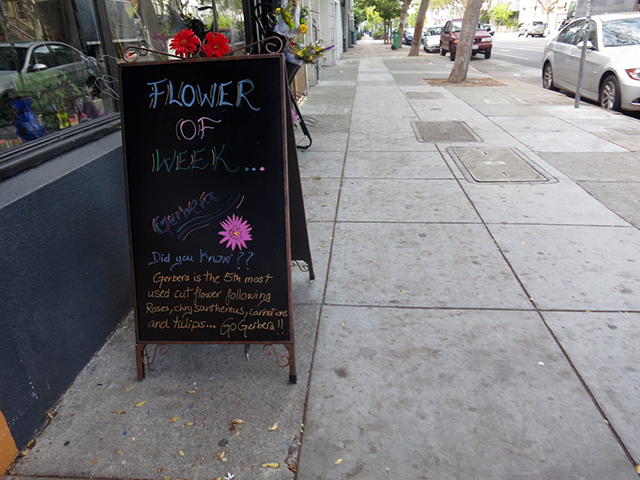 FLOWER
OF
WEEK...
Gerbera
Did you know??
Gerbera is the 5th most
used cut flower following
Roses, chrysanthemus, carnations
and tulips... Go Gerbera!!